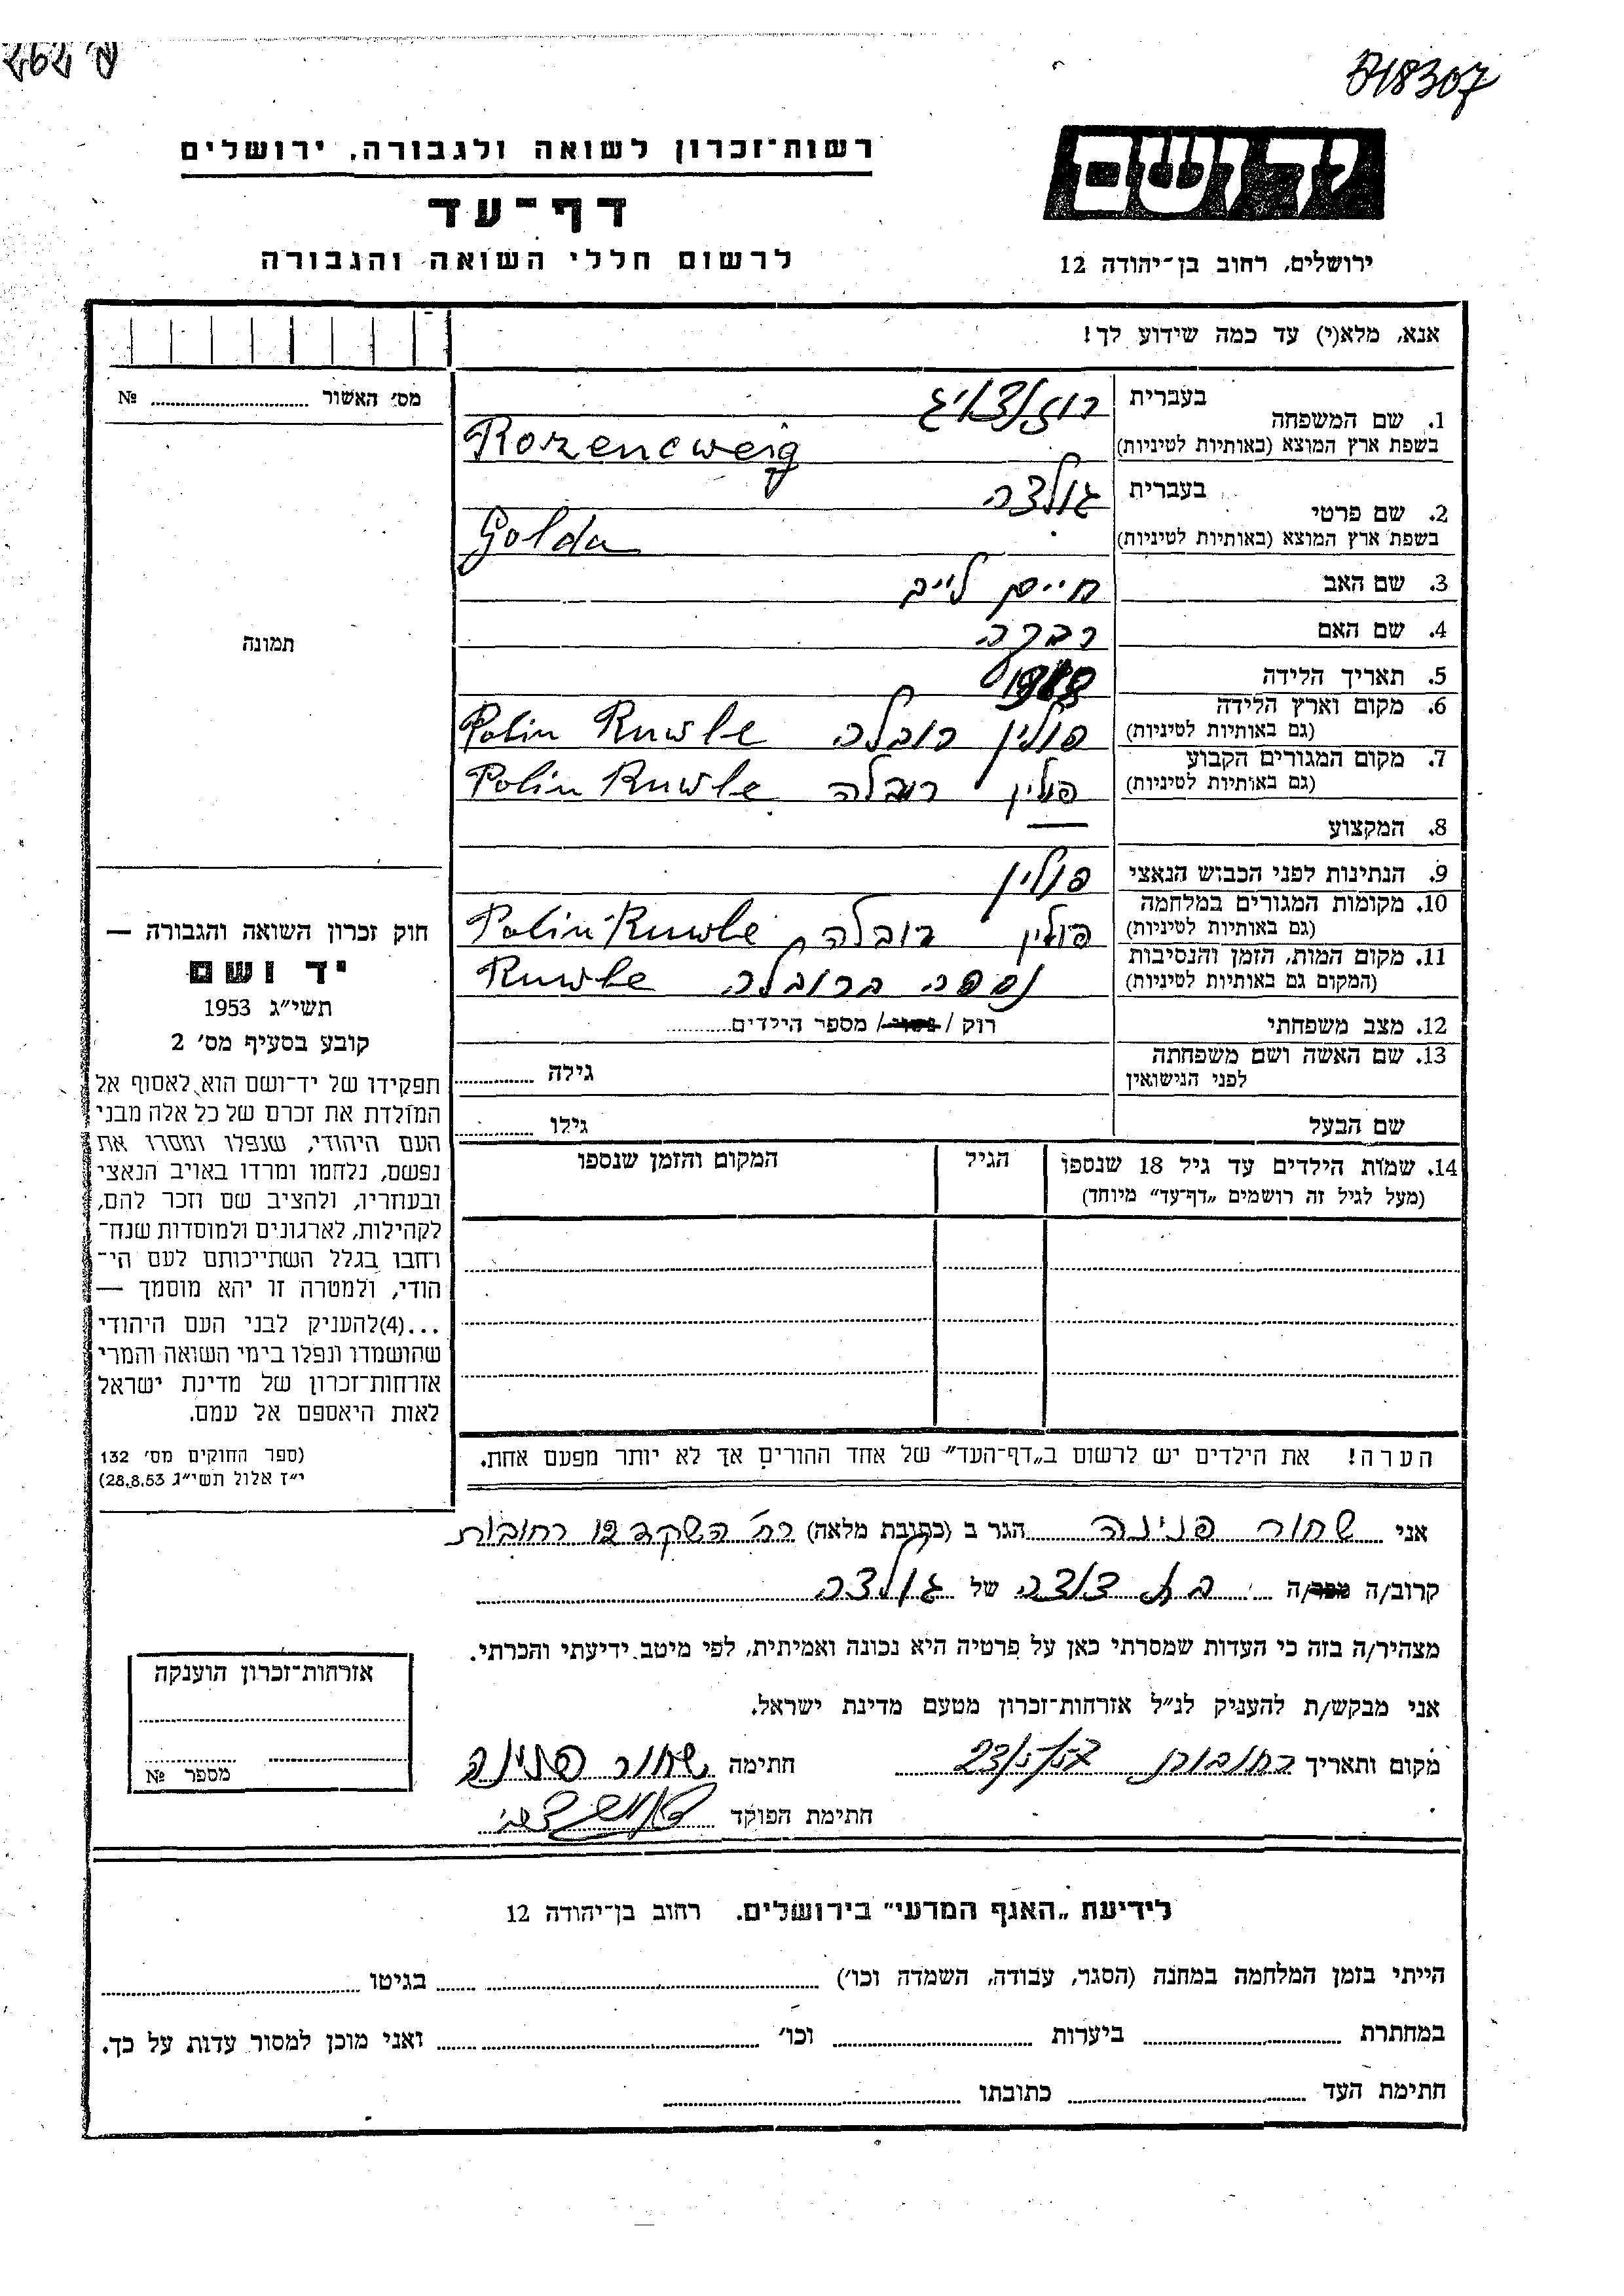 B18307
רשות־זכרון לשואה ולגבורה, ירושלים
דף־עד
לרשום חללי השואה והגבורה
יד ושם
ירושלים, רחוב בן־יהודה 12
אנא, מלא(י) עד כמה שידוע לך!
מס׳ האשור № 
1. שם המשפחה
בעברית
בשפת ארץ המוצא (באותיות לטיניות)
Rozencweig
2. שם פרטי
בעברית גולדה
בשפת ארץ המוצא (באותיות לטיניות)
Golda
3. שם האב חיים לייב
4. שם האם רבקה
5. תאריך הלידה
6. מקום וארץ הלידה
(גם באותיות לטיניות)
פולין רובלה Polin Ruwle
7. מקום המגורים הקבוע
(גם באותיות לטיניות)
פולין רובלה Polin Ruwle
8. המקצוע —
9. הנתינות לפני הכבוש הנאצי פולין
10. מקומות המגורים במלחמה
(גם באותיות לטיניות)
פולין רובלה Polin-Ruwle
11. מקום המות, הזמן והנסיבות
(המקום גם באותיות לטיניות)
נספה ברובלה Ruwle
12. מצב משפחתי רוק / נשוי / מספר הילדים
13. שם האשה ושם משפחתה
לפני הנישואין
גילה
שם הבעל גילו
14. שמות הילדים עד גיל 18 שנספו
(מעל לגיל זה רושמים „דף־עד״ מיוחד)
הגיל
המקום והזמן שנספו
הערה! את הילדים יש לרשום ב„דף־העד״ של אחד ההורים אך לא יותר מפעם אחת.
תמונה
חוק זכרון השואה והגבורה —
יד ושם
תשי״ג 1953
קובע בסעיף מס׳ 2
תפקידו של יד־ושם הוא לאסוף אל
המולדת את זכרם של כל אלה מבני
העם היהודי, שנפלו ומסרו את
נפשם, נלחמו ומרדו באויב הנאצי
ובעוזריו, ולהציב שם וזכר להם,
לקהילות, לארגונים ולמוסדות שנח־
רחבו בגלל השתייכותם לעם הי־
הודי, ולמטרה זו יהא מוסמך —
...(4)להעניק לבני העם היהודי
שהושמדו ונפלו בימי השואה והמרי
אזרחות־זכרון של מדינת ישראל
לאות היאספם אל עמם.
(ספר החוקים מס׳ 132
י״ז אלול תשי״ג 28.8.53)
אני שחור פנינה הגר ב (כתובת מלאה) רח׳ השקד רחובות
קרוב/ה מכר/ה בת דודה של גולדה
מצהיר/ה בזה כי העדות שמסרתי כאן על פרטיה היא נכונה ואמיתית, לפי מיטב ידיעתי והכרתי.
אני מבקש/ת להעניק לנ״ל אזרחות־זכרון מטעם מדינת ישראל.
מקום ותאריך רחובות חתימה שחור פנינה
חתימת הפוקד
אזרחות־זכרון הוענקה
מספר №
לידיעת „האגף המדעי״ בירושלים. רחוב בן־יהודה 12
הייתי בזמן המלחמה במחנה (הסגר, עבודה, השמדה וכו׳) בגיטו
במחתרת ביערות וכו׳ ואני מוכן למסור עדות על כך.
חתימת העד כתובתו